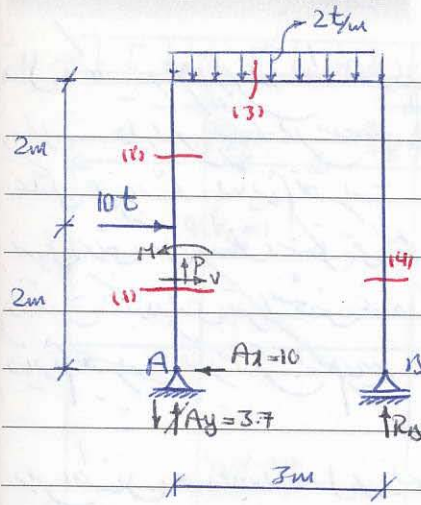 2t/m
(3)
2m
(2)
10t
M
P
V
(4)
2m
(1)
A
Ax=10
B
Ay=3.7
3m